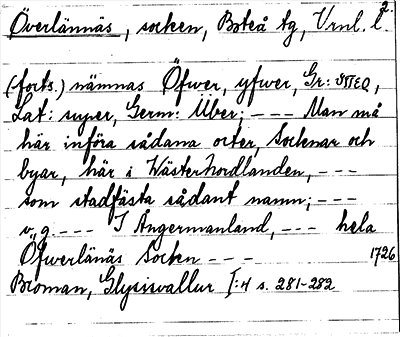 Överlännäs, socken, Boteå tg, Vrnl. l. 2.
(forts.) nämnas Öfwer, yfwer, Gr: ὑπερ,
Lat: super, Germ: Über; --- Man må
här införa sådana orter, Socknar och
byar, här i Wästerhordlanden, ---
som stadfästa sådant namn; ---
v.g. --- I Angermanland, --- hela
Öfwerlänäs Socken --- 1726
Broman, Glysisvallur I:4 s. 281-282